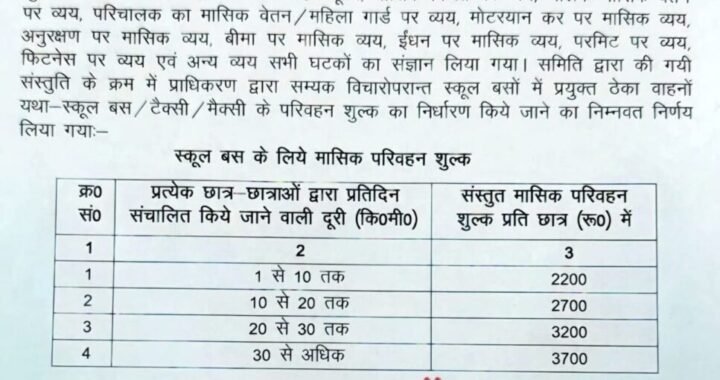 पर व्यय, परिचालक का मासिक वेतन/महिला गार्ड पर व्यय, मोटरयान कर पर मासिक व्यय,
अनुरक्षण पर मासिक व्यय, बीमा पर मासिक व्यय, ईंधन पर मासिक व्यय, परमिट पर व्यय,
फिटनेस पर व्यय एवं अन्य व्यय सभी घटकों का संज्ञान लिया गया। समिति द्वारा की गयी
संस्तुति के क्रम में प्राधिकरण द्वारा सम्यक विचारोपरान्त स्कूल बसों में प्रयुक्त ठेका वाहनों
यथा–स्कूल बस/टैक्सी/मैक्सी के परिवहन शुल्क का निर्धारण किये जाने का निम्नवत निर्णय
लिया गयाः–
स्कूल बस के लिये मासिक परिवहन शुल्क
क्र0 सं0 | प्रत्येक छात्र–छात्राओं द्वारा प्रतिदिन संचालित किये जाने वाली दूरी (कि0मी0) | संस्तुत मासिक परिवहन शुल्क प्रति छात्र (रू0) में
1 | 2 | 3
1 | 1 से 10 तक | 2200
2 | 10 से 20 तक | 2700
3 | 20 से 30 तक | 3200
4 | 30 से अधिक | 3700